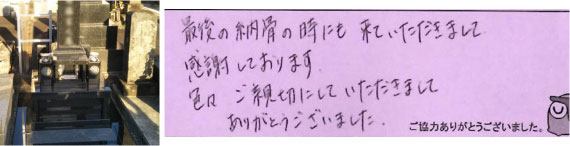 最後の納骨の時にも 来ていただきまして
感謝しております.
色々 ご親切にしていただきまして
ありがとうございました.
ご協力ありがとうございました。